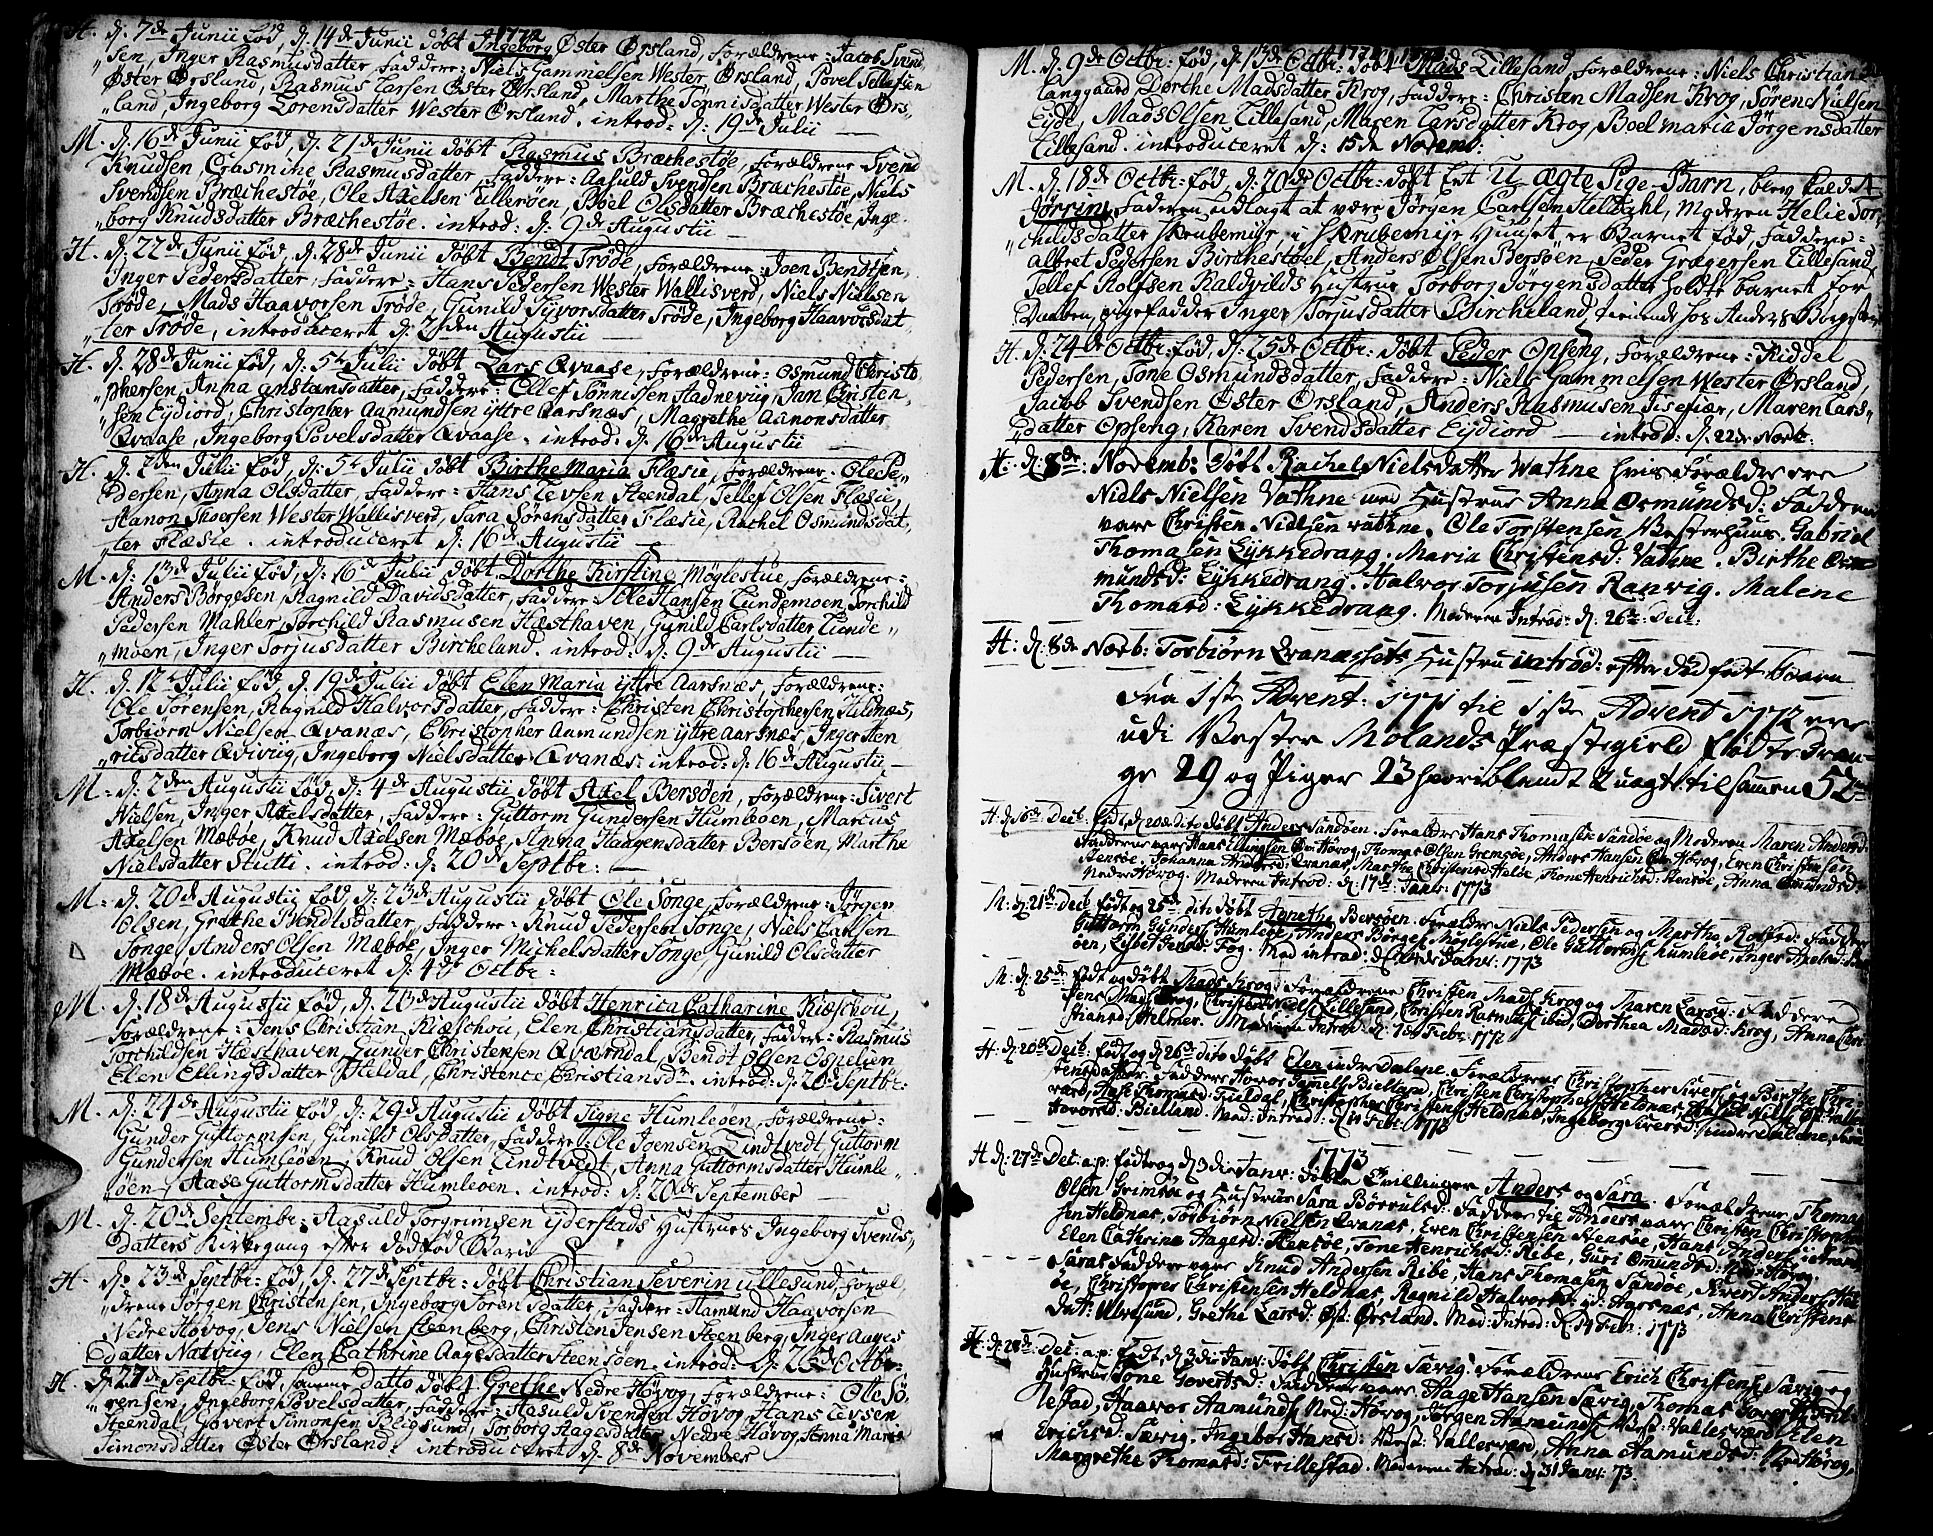 1772
H. d: 7de Junii fød, d. 14de Junii døbt Ingeborg Øster Ørsland, Forældrene: Jacob Svend„
„sen, Inger Rasmusdatter, Faddere: Niels Gammelsen Wester Ørsland, Povel Tellefsen
Øster Ørsland, Rasmus Larsen Øster Ørsland, Marthe Tønnisdatter Wester Ørs„
„land, Ingeborg Lorensdatter Wester Ørsland. introd: d: 19de Julii
M. d: 16de Junii fød, d: 21de Junii døbt Rasmus Bræchestøe, Forældrene Svend
Knudsen, Erasmine Rasmusdatter, Faddere: Aasuld Svendsen Bræchestøe, Niels
Svendsen Bræchestøe, Ole Axelsen Tillerøen, Boel Olsdatter Bræchestøe, Inge„
„borg Knudsdatter Bræchestøe. introd: d: 9de Augustii
H. d: 22de Junii fød, d: 28de Junii døbt Bendt Trøde, Forældrene: Joen Bendtsen,
Inger Pedersdatter, Faddere: Hans Pedersen Wester Wallisverd, Niels Nielsen
Trøde, Mads Haavorsen Trøde, Gunild Syvorsdatter Trøde, Ingeborg Haavorsdat„
„ter Trøde, introduceret d: 2den Augustii
H. d: 28de Junii fød, d: 5te Julii døbt Lars Qvaase, Forældrene: Osmund Christo„
„phersen, Anna Constansdatter, Faddere: Ellef Tønnissen Stadnevig, Jan Christen„
„sen Eydiord, Christopher Aamundsen yttre Aarsnæs, Magrethe Aanonsdatter
Qvaase, Ingeborg Povelsdatter Qvaase. introd: d: 16de Augustii
H. d: 2den Julii fød, d: 5te Julii døbt Birthe Maria Flæsie, Forældrene: Ole Pe„
„dersen, Anna Olsdatter, Faddere: Hans Levsen Steendal, Tellef Olsen Flæsie,
Aanon Thoersen Wester Wallisverd, Sara Sørensdatter Flæsie, Rachel Osmundsdat„
„ter Flæsie. introduceret d: 16de Augustii
M. d: 13de Julii fød, d: 16de Julii døbt Dorthe Kirstine Møglestue, Forældrene:
Anders Børgesen, Ragnild Davidsdatter, Faddere: Ole Hansen Lundemoen, Torchild
Pedersen Mahler, Torchild Rasmusen Hæsthaven, Gunild Carlsdatter Lunde„
„moen, Inger Torjusdatter Bircheland. introd: d: 9de Augustii
H. d: 12te Julii fød, d: 19de Julii døbt Elen Maria yttre Aarsnæs, Forældrene:
Ole Sørensen, Ragnild Halvorsdatter, Faddere: Christen Christophersen Hildnæs,
Torbiørn Nielsen Qvanæs, Christopher Aamundsen yttre Aarsnæs, Inger Hen„
„ricsdatter Qvivig, Ingeborg Nielsdatter Qvanæs: introd: d: 16de Augustii
M. d: 2den Augustii fød, d: 4de Augustii døbt Axel Bersøen, Forældrene: Sivert
Nielsen, Inger Axelsdatter, Faddere: Guttorm Gundersen Humleøen, Marcus
Axelsen Mæbøe, Knud Axelsen Mæbøe, Anna Haagensdatter Bersøen, Marthe
Nielsdatter Stutti. introd: d: 20de Septbr:
M. d: 20de Augustii fød, d: 23de Augustii døbt Ole Songe, Forældrene: Jørgen
Olsen, Grethe Bendtsdatter, Faddere: Knud Pedersen Songe, Niels Larsen
Songe, Anders Olsen Mæbøe, Inger Michelsdatter Songe, Gunild Olsdatter
Mæbøe. introduceret d: 4de Octbr:
M. d: 18de Augustii fød, d: 23de Augustii døbt Henrica Catharine Kiæschou,
Forældrene: Jens Christian Kiæschou, Elen Christiansdatter, Faddere: Rasmus
Torchildsen Hæsthaven, Gunder Christensen Qværndal, Bendt Olsen Ospelien
Elen Ellingsdatter Heldal, Christence Christiansdr. introd: d: 20de Septbr:
M. d: 24de Augustii fød, d: 29de Augustii døbt Signe Humleøen, Forældrene:
Gunder Guttormsen, Gunild Olsdatter, Faddere: Ole Joensen Lindtvedt, Guttorm
Gundersen Humleøen, Knud Olsen Lindtvedt, Anna Guttormsdatter Humle„
„øen, Aase Guttormsdatter Humleøen. introd: d: 20de September
M. d. 20de Septembr: Aasuld Torgrimsen yderstads Hustrues Ingeborg Svends„
datters Kirkegang efter Dødfød Barn
H. d: 23de Septbr: fød, d: 27de Septbr: døbt Christian Severin Ullesund, Foræl„
„drene Jørgen Christensen, Ingeborg Sørensdatter, Faddere: Aamund Haavorsen
Nedre Høvog, Jens Nielsen Steenberg, Christen Jensen Steenberg, Inger Aages
datter Natvig, Elen Cathrine Aagesdatter Steensøen. introd: d: 26de Octbr:
H. d. 27de Septbr: fød, samme Datto døbt Grethe Nedre Høvog, Forældrene: Ole Sø„
„rensen, Ingeborg Povelsdatter, Faddere: Aasuld Svendsen Høvog, Hans Levsen
Steendal, Govert Simonsen Bliegsund, Torborg Aagesdatter Nedre Høvog, Anna Marie
Simonsdatter Øster Ørsland. introduceret d: 8de November
1772
M. d. 9de Octbr: fød, d: 13de Octbr: døbt Mads Lillesand, Forældrene: Niels Christian
Langgaard, Dorthe Madsdatter Krog, Faddere: Christen Madsen Krog, Søren Nielsen
Eyde, Mads Olsen Lillesand, Maren Larsdatter Krog, Boel Maria Jørgensdatter
Lillesand. introduceret d: 15de Novemb:
M. d: 18de Octbr: fød, d: 20de Octbr: døbt Eet U ægte Pige-Barn, blev kaldet
Jørgine, Faderen udlagt at være Jørgen Carlsen Heldahl, Moderen Helie Tor„
„childsdatter Skrubemyr, i Skrubemyr Huuset er Barnet fød, Faddere:
Albret Pedersen Birchestøel, Anders Olsen Bersøen, Peder Gregersen Lillesand,
Tellef Rolfsen Kaldvilds Hustrue Torborg Jørgensdatter holdte barnet for
Daaben, pigefadder Inger Torjusdatter Bircheland, tienende hos Anders Børgesen
H. d: 24de Octbr: fød, d: 25de Octbr: døbt Peder Opseng, Forældrene: Kiddel
Pedersen, Tone Osmundsdatter, Faddere: Niels Gammelsen Wester Ørsland,
Jacob Svendsen Øster Ørsland, Anders Rasmusen Isefiær, Maren Lars„
„datter Opseng, Karen Svendsdatter Eydiord introd: d. 22de Novbr:
H. d. 8de: Novemb: døbt Rachel Nielsdatter Vathne hvis Forældre ere
Niels Nielsen Vathne med Hustrue Anna Osmundsd: Fadderne
vare Christen Nielsen Vathne. Ole Torstensen Vesterhuus. Gabriel
Thomasen Lykkedrang. Maria Christensd: Vathne. Birthe Os„
mundsd: Lykkedrang. Halvor Torjusen Ranvig. Malene
Thomasd: Lykkedrang. Moderen Introd: d: 26de Decb:
H: d: 8de Novb: Torbiørn Qvanæssets Hustru introd: efter Dødfødt Barn
Fra 1ste Advent: 1771 til 1ste Advent 1772 ere
udi Vester Molands Præstegield fødte Dren„
ge 29 og Piger 23 hvoriblandt 2 uægte tilsammen 52
H. d. 16de Decb. født, d. 20de dito døbt Anders Sandøen. Forældre Hans Thomasen Sandøe og Moderen Maren Andersd:
Fadderne vare Hans Ellingsen Høvog, Thomas Olsen Gremsøe, Anders Hansen Høvog, Even Christensen
Steensøe. Johanna Andersd: Qvanæs, Marthe Christensd Heløe, Tone Henrichsd: Steensøe, Anna Omundsd:
Neder Høvog. Moderen Introd: d: 17de Janv: 1773
M. d. 21de Decb født og 25de dito døbt Agnethe Bersøen. Forældre Niels Pedersen og Marthe Rolfsd: Faddere
Guttorm Gunders: Humleøe, Anders Børges: Møglestue, Ole Guttorms: Humleøe, Inger Axelsd:
øen, Lisbet Jensd: Fog. Mod introd: Janv: 1773
M: d: 25de født og døbt Mads Krog. Forældrene Christen Mads: Krog og Maren Larsd: Faddere
Jens Mads: Krog, Christen Niels: Lillesand, Christen Rasmus: Ribe, Dorthea Madsd: Krog, Anna Chri
stiansd: Helmer. Moderen Introd: Febr: 1772
H: d: 20de Decb: født og d 26de dito døbt Elen indre Dalene. Forældrene Christopher Sivers: og Birthe Chri
stensdatter. Faddere Hovor Gamels: Bielland, Christen Christophers: Heldnæs, Niels: Valles
værd, Aase Thomasd: Tieldal, Christopher Christens: Heldnæs, Ingeborg Siversd: indre Dalene,
Hovorsd: Bielland. Mod: Introd: d 14 Febr: 1773
1773
H d: 27de Dec: a:p: født og d 3die Janv: døbte Tvillinger Anders og Sara. Forældrene Thomas
Olsen Grimsøe og Hustrue Sara Børrulsd: Faddere til Anders vare Christen Christopher
sen Heldnæs, Torbiørn Nielsen Qvanæs, Even Christensen Steensøe, Hans Anders:
Elen Cathrina Aagesd: Steensøe, Tone Henrichsd: Ribe, Guri Omundsd: Ned: Høvog.
Saras Faddere vare Knud Andersen Ribe, Hans Thomasen Sandøe, Siver Anders: Hel
øe, Christopher Christensen Heldnæs, Ragnild Halvorsd: yd: Aarsnæs, Anna Christens
dat: Ulvesund, Grethe Larsd: Øst: Ørsland. Mod: Introd: d 14 Febr: 1773
H: d 28de Dec: a:p: født, d 3die Janv: døbt Christen Særvig. Forældrene Erich Christens: Særvig og
Hustrue Tone Govertsd: Fadderne vare Aage Hansen Særvig, Thomas Goverts: Fril
lestad, Haavor Aamunds: Ned: Høvog, Jørgen Aamunds: Vest: Vallesværd Elen
Erichsd: Særvig. Ingebor Hansd: Vest: Vallesværd, Anna Aamundsd: Ned Høvog,
Margrethe Thomasd: Frillestad. Moderen Introd: d 31 Janv: 73.